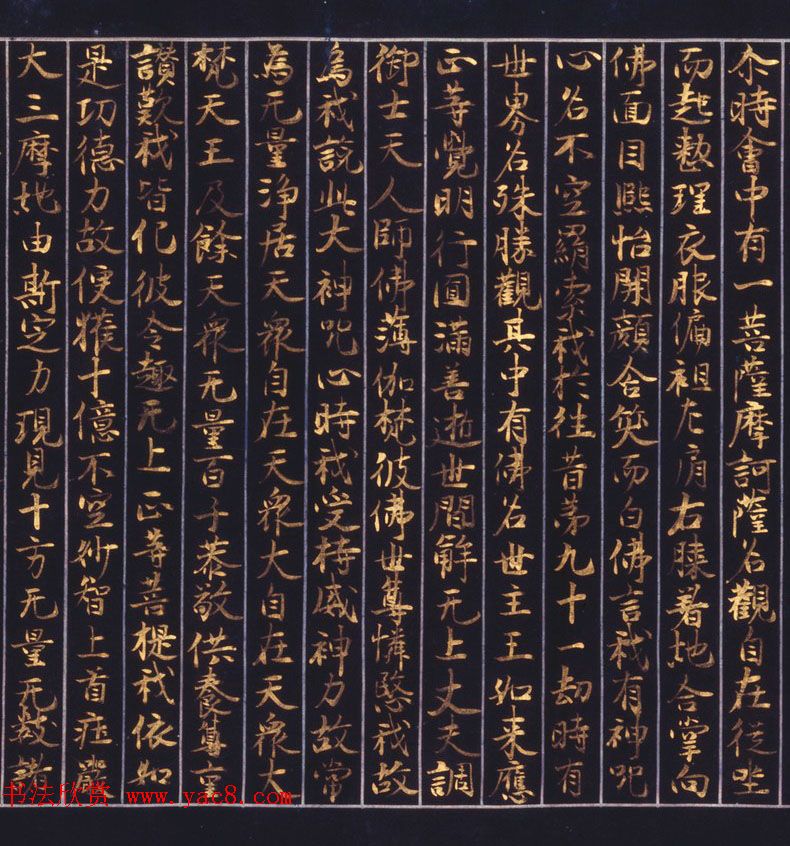 尒時會中有一菩薩摩訶薩名觀自在從坐
而起整理衣服偏袒左肩右膝著地合掌向
佛面目熙怡開顏含笑而白佛言我有神呪
心名不空羂索我於往昔第九十一劫時有
世界名殊勝觀其中有佛名世主王如来應
正等覺明行圓滿善逝世間解无上丈夫調
御士天人師佛薄伽梵彼佛世尊憐愍我故
為我說此大神呪心時我受持威神力故常
為无量淨居天衆自在天衆大自在天衆大
梵天王及餘天衆无量百千恭敬供養尊重
讃歎我皆化彼令趣无上正等菩提我依如
是功德力故便獲十億不空妙智上首庄嚴
大三摩地由斯定力現見十方无量无数諸
书法欣赏 www.yac8.com